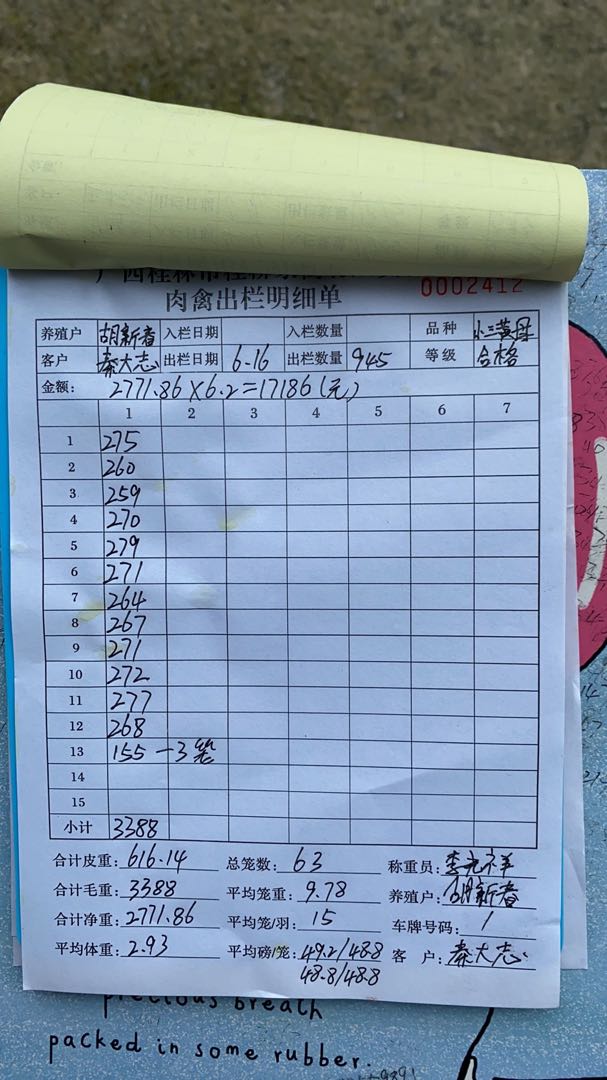 0002412
肉禽出栏明细单
养殖户 胡新春 入栏日期 入栏数量 品种 小三黄母
客户 秦大志 出栏日期 6-16 出栏数量 945 等级 合格
金额: 2771.86×6.2=17186(元)
1 2 3 4 5 6 7
1 275
2 260
3 259
4 270
5 279
6 271
7 264
8 267
9 271
10 272
11 277
12 268
13 155 -3笼
14
15
小计 3388
合计皮重: 616.14 总笼数: 63 称重员:
合计毛重: 3388 平均笼重: 9.78 养殖户: 胡新春
合计净重: 2771.86 平均笼/羽: 15 车牌号码: 1
平均体重: 2.93 平均磅/笼: 49.2/48.8 客 户: 秦大志
48.8/48.8
precious breath
packed in some rubber.